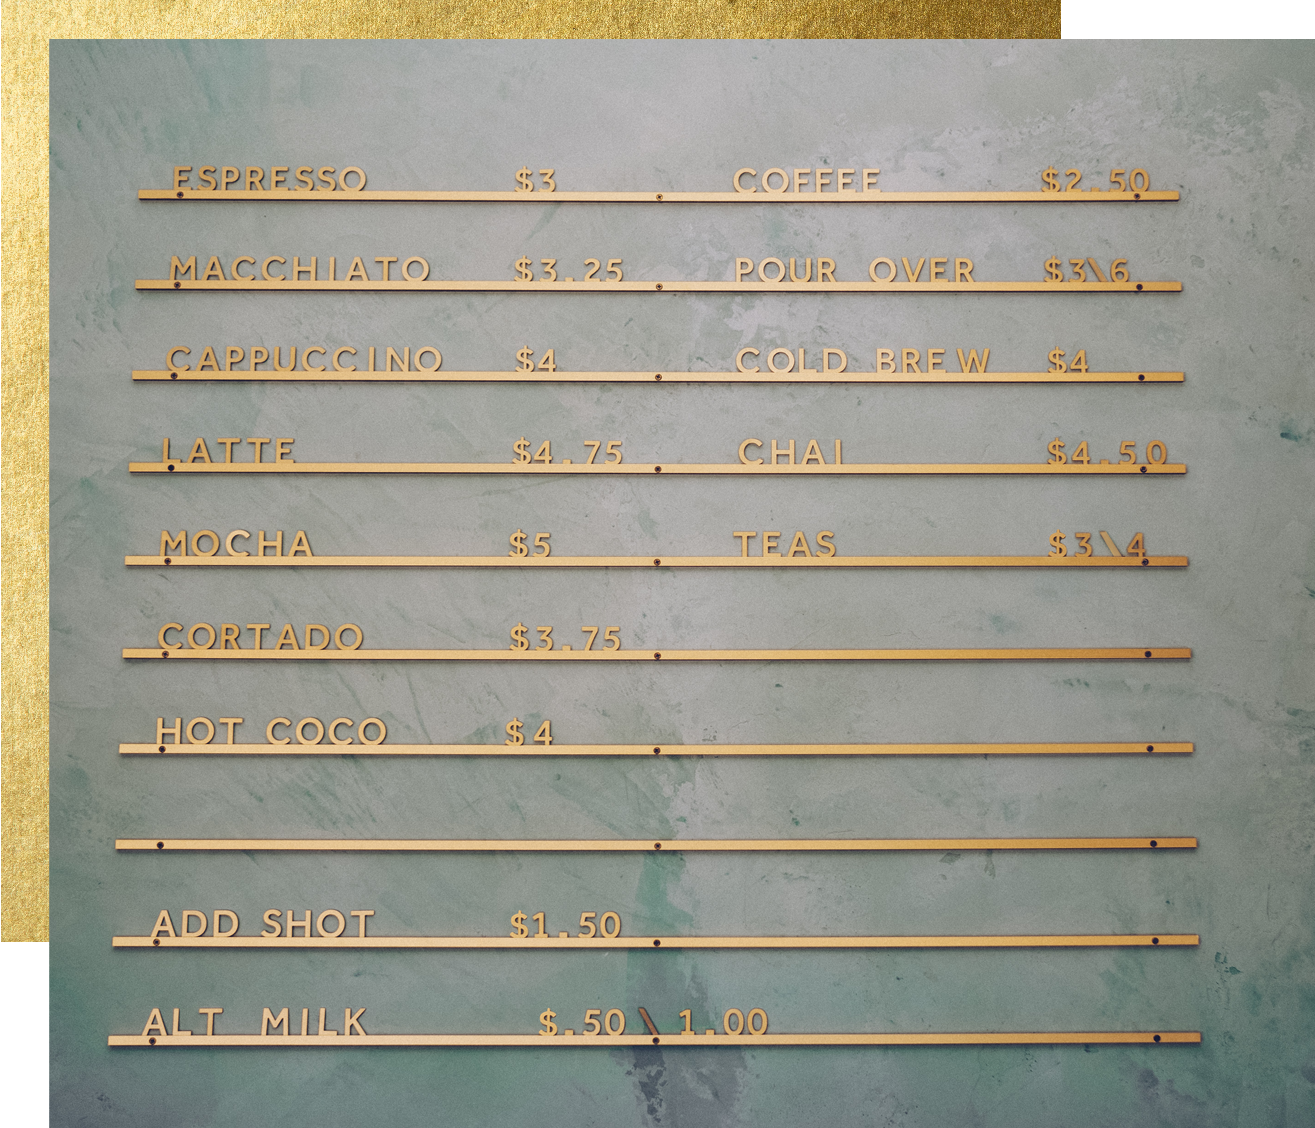 ESPRESSO $3 COFFEE $2.50
MACCHIATO $3.25 POUR OVER $3\6
CAPPUCCINO $4 COLD BREW $4
LATTE $4.75 CHAI $4.50
MOCHA $5 TEAS $3\4
CORTADO $3.75
HOT COCO $4
ADD SHOT $1.50
ALT MILK $.50 \ 1.00